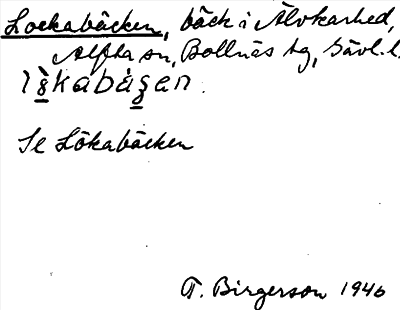 Lockabäcken, bäck i Älvkarhed,
Alfta sn, Bollnäs tg, Gävl. l.
Se Lökabäcken
T. Birgerson 1946